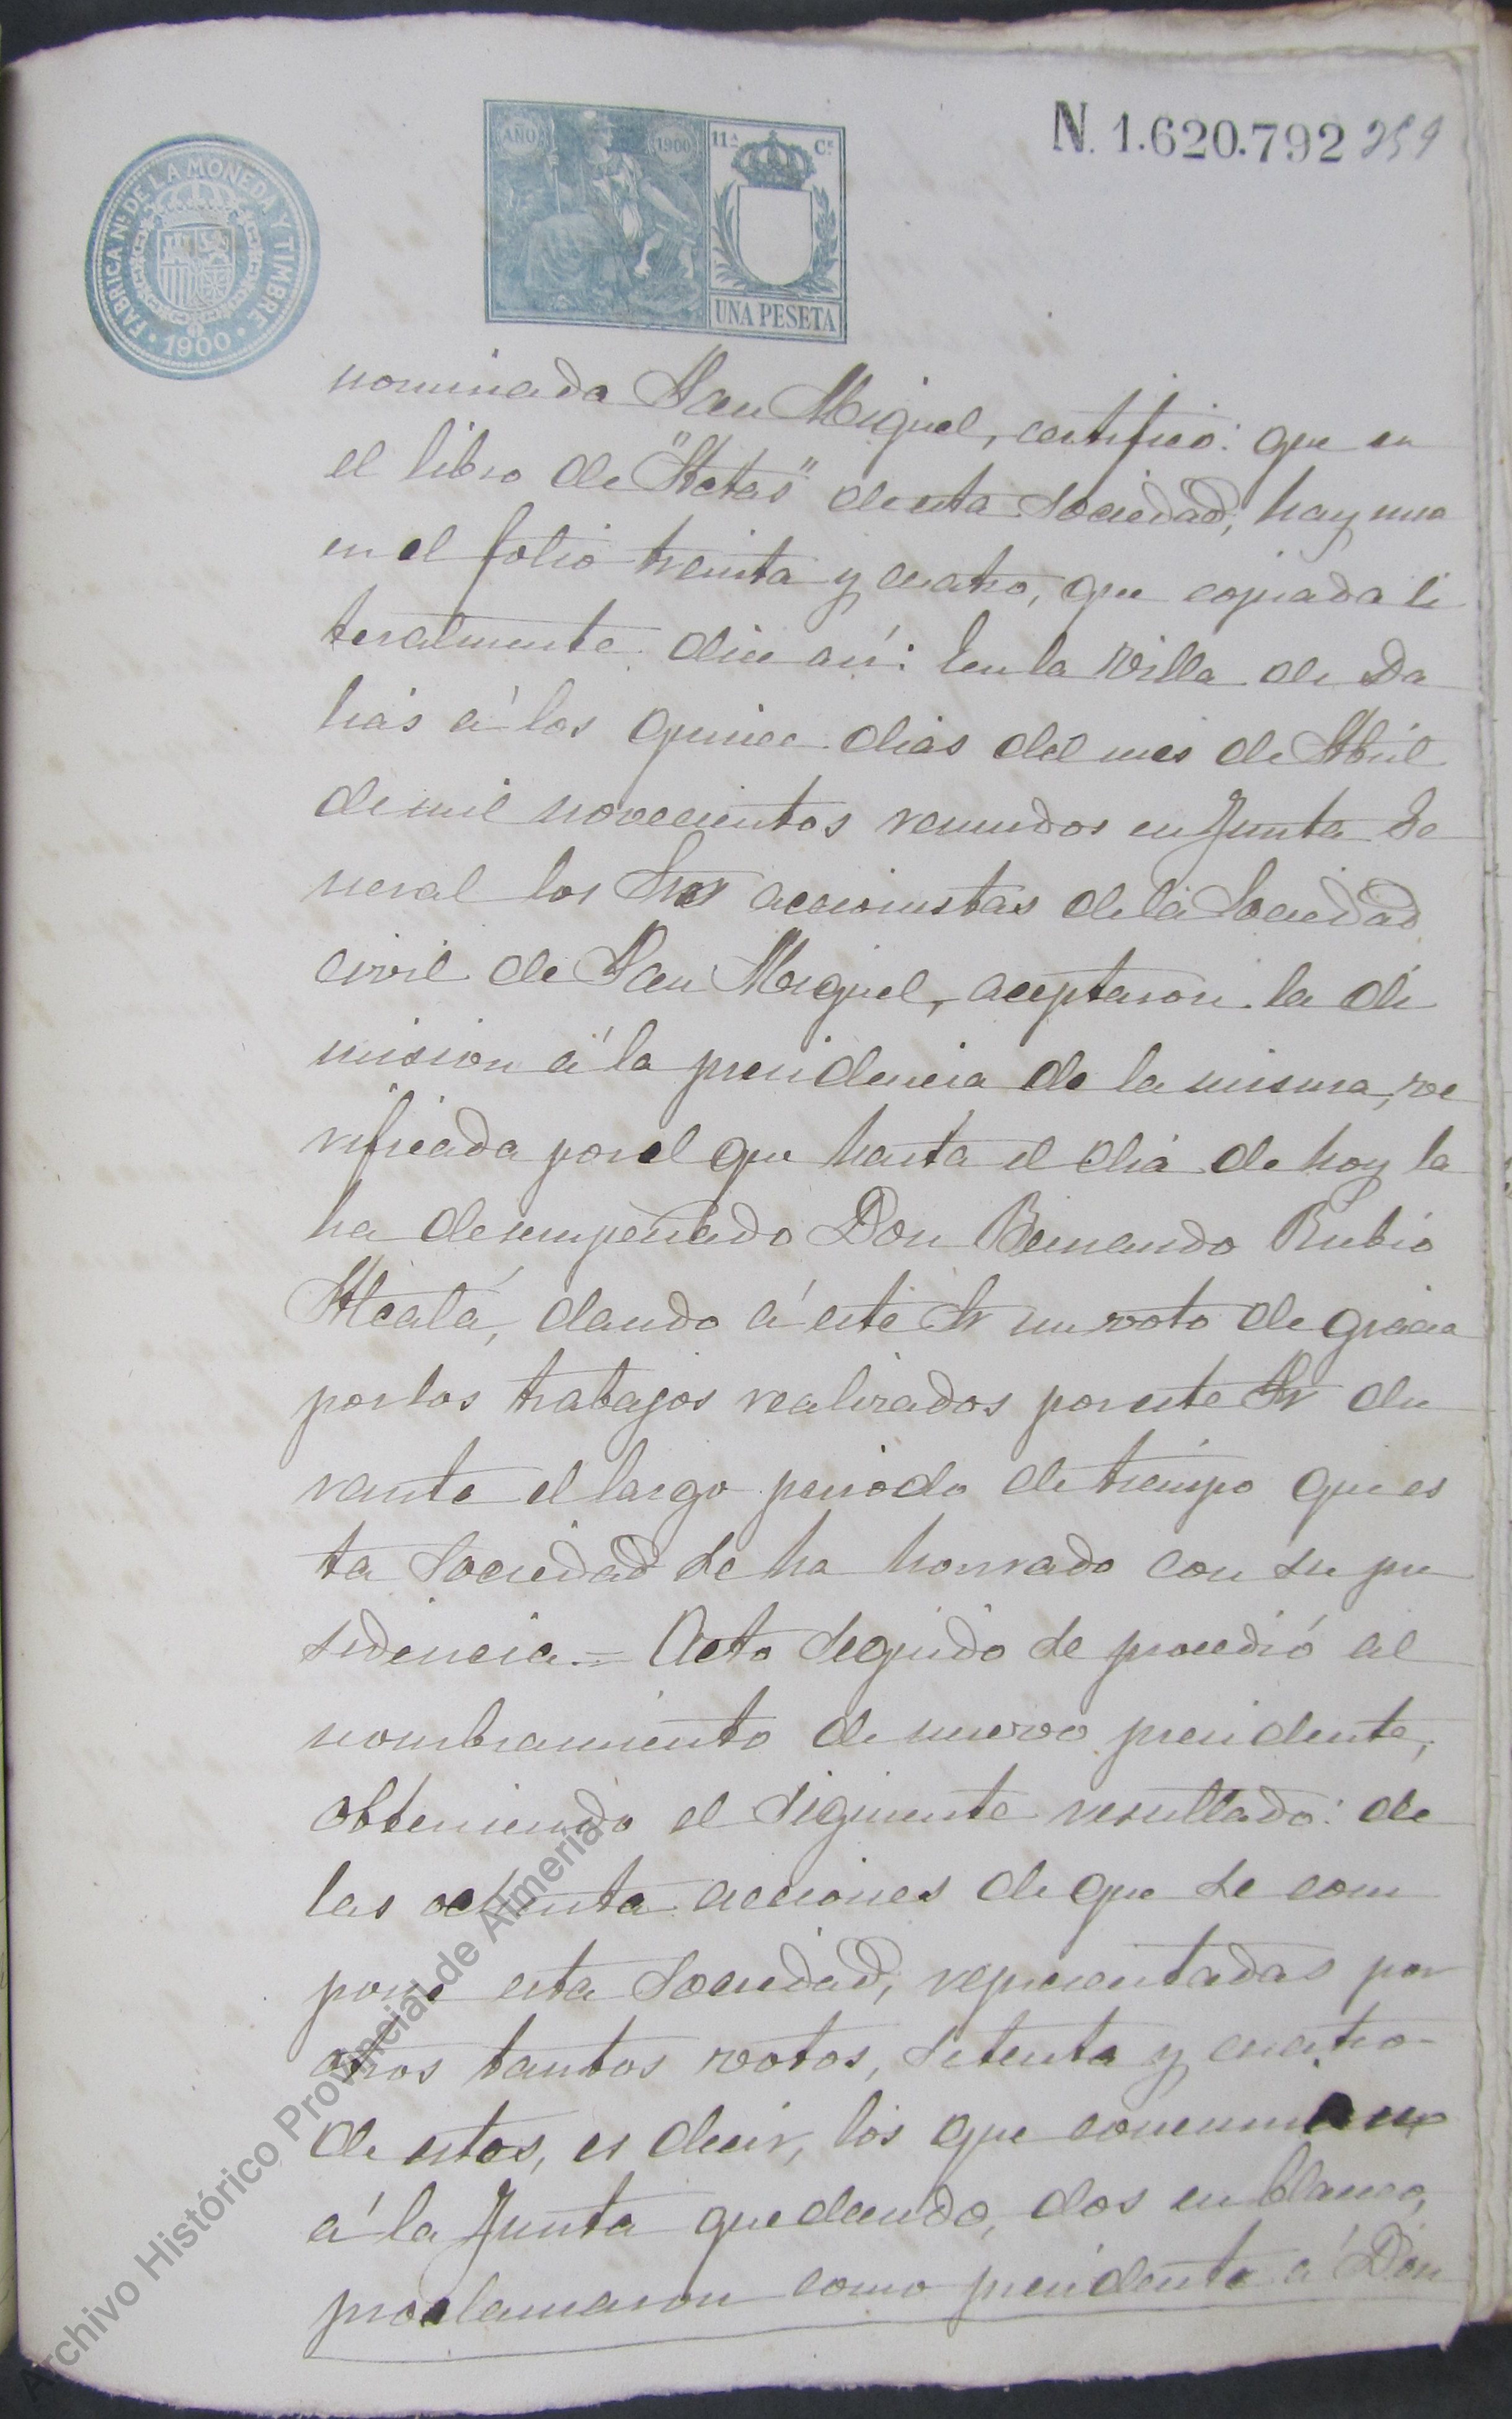 N. 1.620.792 259
AÑO 1900 11ª Cᵉ
UNA PESETA
FABRICA Nˡ DE LA MONEDA Y TIMBRE
1900
nominada San Miguel, certifico: que en
el libro de "Actas" de esta Sociedad, hay una
en el folio treinta y cuatro, que copiada li
teralmente dice asi: En la Villa de Da
lias á los quince dias del mes de Abril
de mil novecientos reunidos en Junta Ge
neral los Sres accionistas de la Sociedad
civil de San Miguel, aceptaron la di
mision á la presidencia de la misma, ve
rificada por el que hasta el dia de hoy la
ha desempeñado Don Bernardo Rubio
Alcalá, dando á este Sr un voto de gracia
por los trabajos realizados por este Sr du
rante el largo periodo de tiempo que es
ta Sociedad se ha honrado con su pre
sidencia.= Acto seguido se procedió al
nombramiento de nuevo presidente,
obteniendo el siguiente resultado: de
las ochenta acciones de que se com
pone esta Sociedad, representadas por
otros tantos votos, setenta y cuatro
de estos, es decir, los que
á la Junta quedando, dos en blanco,
proclamaron como presidente á Don
Archivo Histórico Provincial de Almería